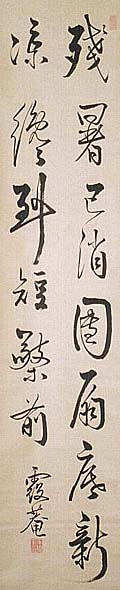 殘暑已消團扇底新
涼纔到短檠前
霞菴